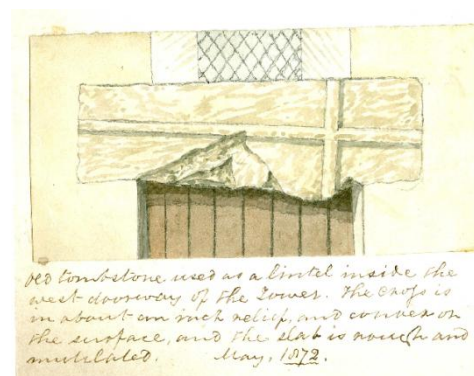 Old tombstone used as a lintel inside the
west doorway of the Tower. The cross is
in about an inch relief, and convex on
the surface, and the slab is rough and
mutilated. May, 1872.